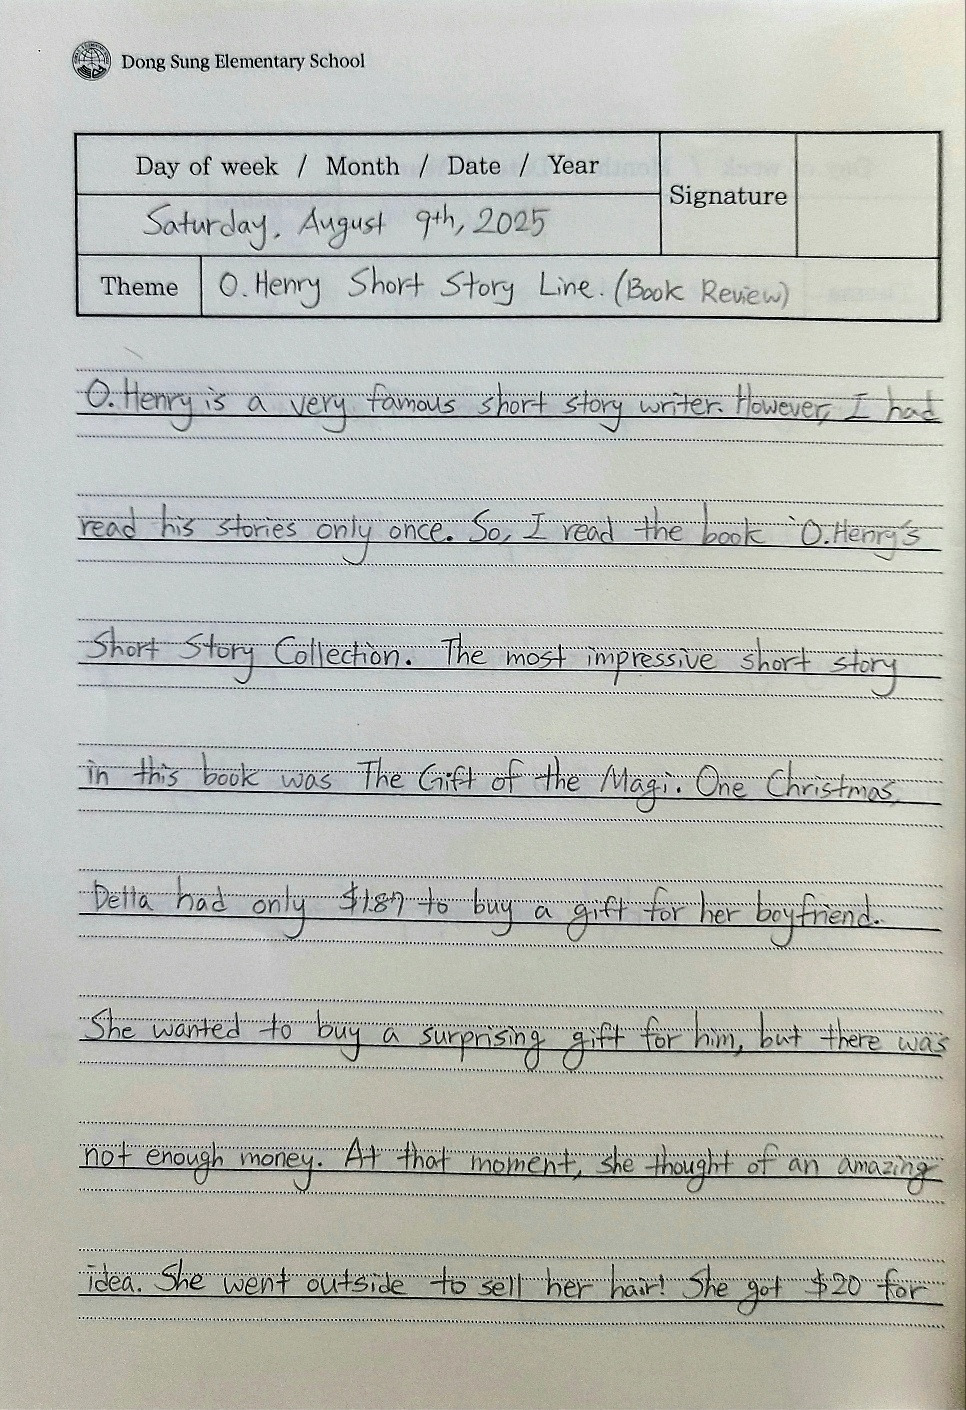 Dong Sung Elementary School
Day of week / Month / Date / Year
Signature
Saturday, August 9th, 2025
Theme
O. Henry Short Story Line. (Book Review)
O. Henry is a very famous short story writer. However, I had
read his stories only once. So, I read the book 'O. Henry's
Short Story Collection. The most impressive short story
in this book was The Gift of the Magi. One Christmas,
Della had only $1.87 to buy a gift for her boyfriend.
She wanted to buy a surprising gift for him, but there was
not enough money. At that moment, she thought of an amazing
idea. She went outside to sell her hair! She got $20 for